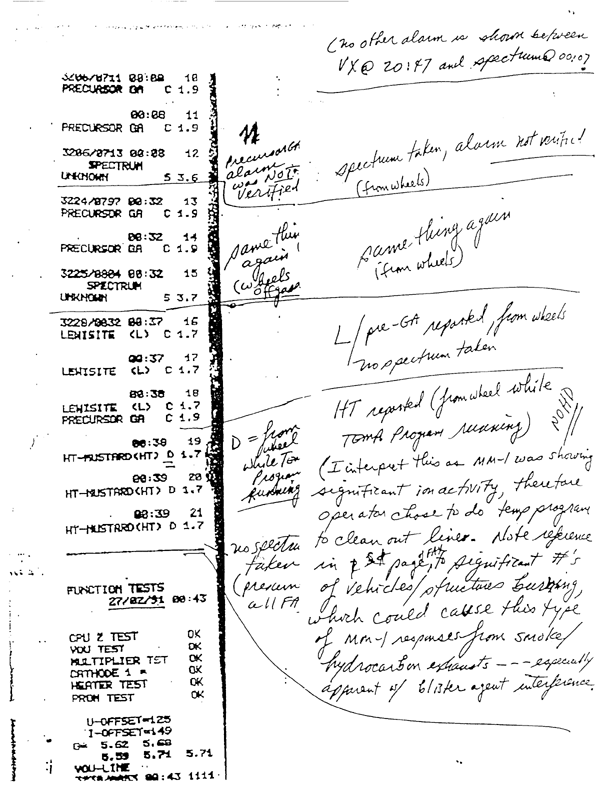 (no other alarm is shown between
VX@ 20:47 and spectrum@ 00:07
3206/0711 00:08 10
PRECURSOR GA C 1.9
00:08 11
PRECURSOR GA C 1.9
3206/0713 00:08 12
SPECTRUM
UNKNOWN S 3.6
Precursor GA
alarm
was NOT
verified
spectrum taken, alarm not verified
(from wheels)
3224/0797 00:32 13
PRECURSOR GA C 1.9
00:32 14
PRECURSOR GA C 1.9
3225/0804 00:32 15
SPECTRUM
UNKNOWN S 3.7
same thin
again!
(wheels
offgass
same thing again
(from wheels)
3228/0832 00:37 16
LEWISITE (L) C 1.7
00:37 17
LEWISITE (L) C 1.7
00:38 18
LEWISITE (L) C 1.7
PRECURSOR GA C 1.9
L/pre-GA reported, from wheels
no spectrum taken
00:38 19
HT-MUSTARD(HT) D 1.7
00:39 20
HT-MUSTARD(HT) D 1.7
00:39 21
HT-MUSTARD(HT) D 1.7
D = from
wheel
while Tom
Program
Running
no spectru
taken
(presum
all FA
HT reported (from wheel while
TOMA Program running)
NO HD
(I interpret this as MM-1 was showing
significant ion activity, therefore
operator chose to do temp program
to clean out lines. Note reference
in 1st page, to significant #'s
of vehicles/structures burning,
which could cause this type
of MM-1 responses from smoke/
hydrocarbon exhausts --- especially
apparent w/ blister agent interference.
FUNCTION TESTS
27/02/91 00:43
CPU Z TEST OK
VDU TEST OK
MULTIPLIER TST OK
CATHODE 1 * OK
HEATER TEST OK
PROM TEST OK
U-OFFSET=125
I-OFFSET=149
G= 5.62 5.68
5.59 5.71 5.71
VDU-LINE
00:43 1111